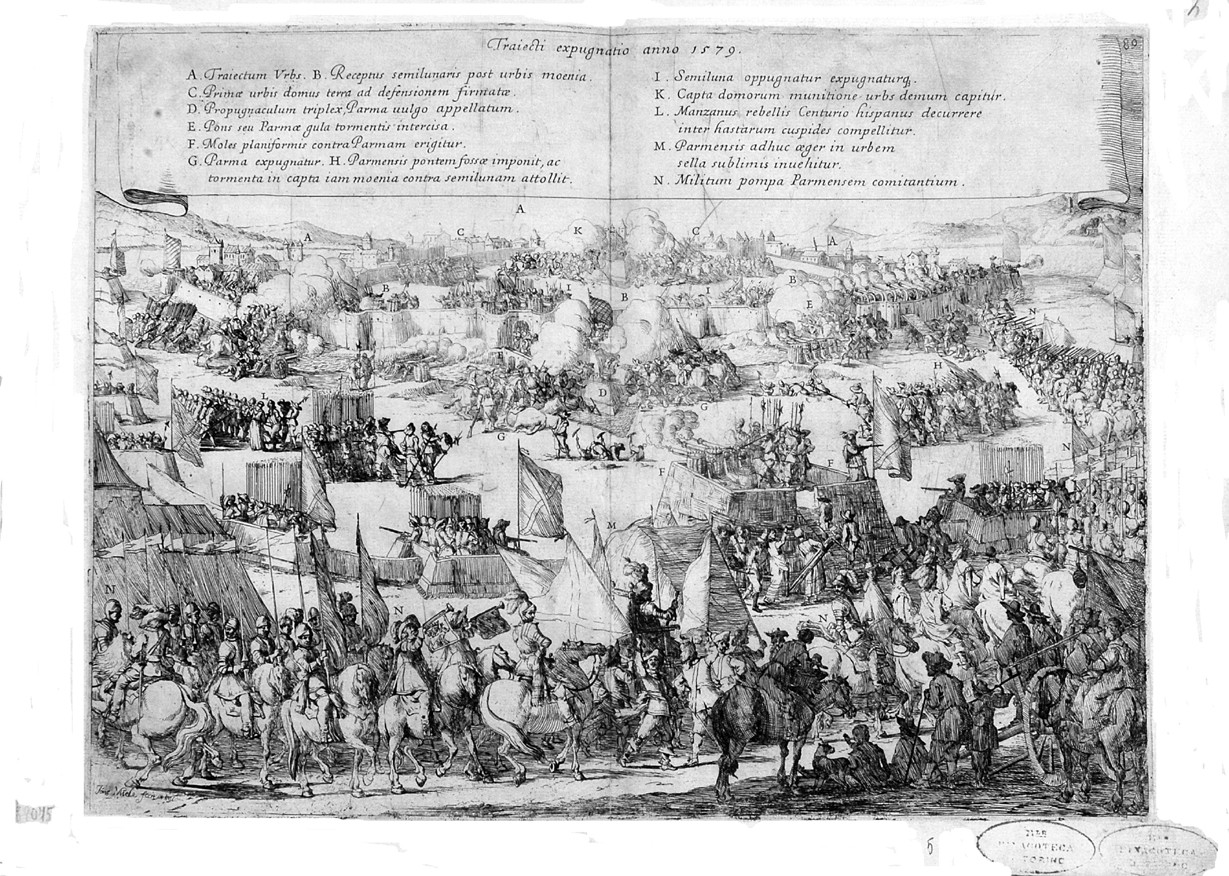 Traiecti expugnatio anno 1579.
89
A. Traiectum Vrbs. B. Receptus semilunaris post urbis moenia.
C. Primæ urbis domus terra ad defensionem firmatæ.
D. Propugnaculum triplex, Parma uulgo appellatum.
E. Pons seu Parmæ gula tormentis intercisa.
F. Moles planiformis contra Parmam erigitur.
G. Parma expugnatur. H. Parmensis pontem fossæ imponit, ac
tormenta in capta iam moenia contra semilunam attollit.
I. Semiluna oppugnatur expugnaturq.
K. Capta domorum munitione urbs demum capitur.
L. Manzanus rebellis Centurio hispanus decurrere
inter hastarum cuspides compellitur.
M. Parmensis adhuc æger in urbem
sella sublimis inuehitur.
N. Militum pompa Parmensem comitantium.
A
A C K C A
B I B I B E
N
H
L D G
G
F F
N
M
N N N
5
PINACOTECA
TORINO
PINACOTECA